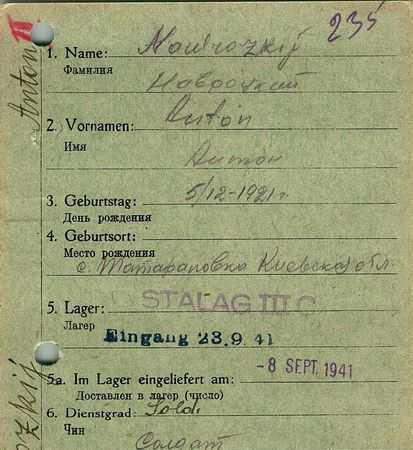 235
Anton
1. Name: Nawrozkij
Фамилия
Навроцкий
2. Vornamen: Anton
Имя
Антон
3. Geburtstag: 5/12-1921 г.
День рождения
4. Geburtsort:
Место рождения
с. Татарановка Киевской обл.
5. Lager: STALAG III C
Лагер
Eingang 23.9.41
- 8 SEPT. 1941
5a. Im Lager eingeliefert am:
Доставлен в лагер (число)
6. Dienstgrad: Sold.
Чин
Солдат
ozkij